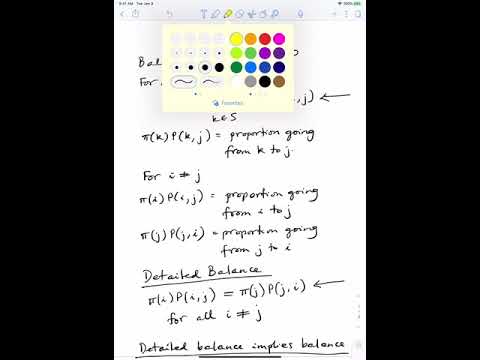 9:41 AM Tue Jan 3
100%
Bala
For
Favorites
, j)
k∈S
π(k)P(k,j) = proportion going
from k to j.
For i ≠ j
π(i)P(i,j) = proportion going
from i to j
π(j)P(j,i) = proportion going
from j to i
Detailed Balance
π(i)P(i,j) = π(j)P(j,i) ←
for all i ≠ j
Detailed balance implies balance